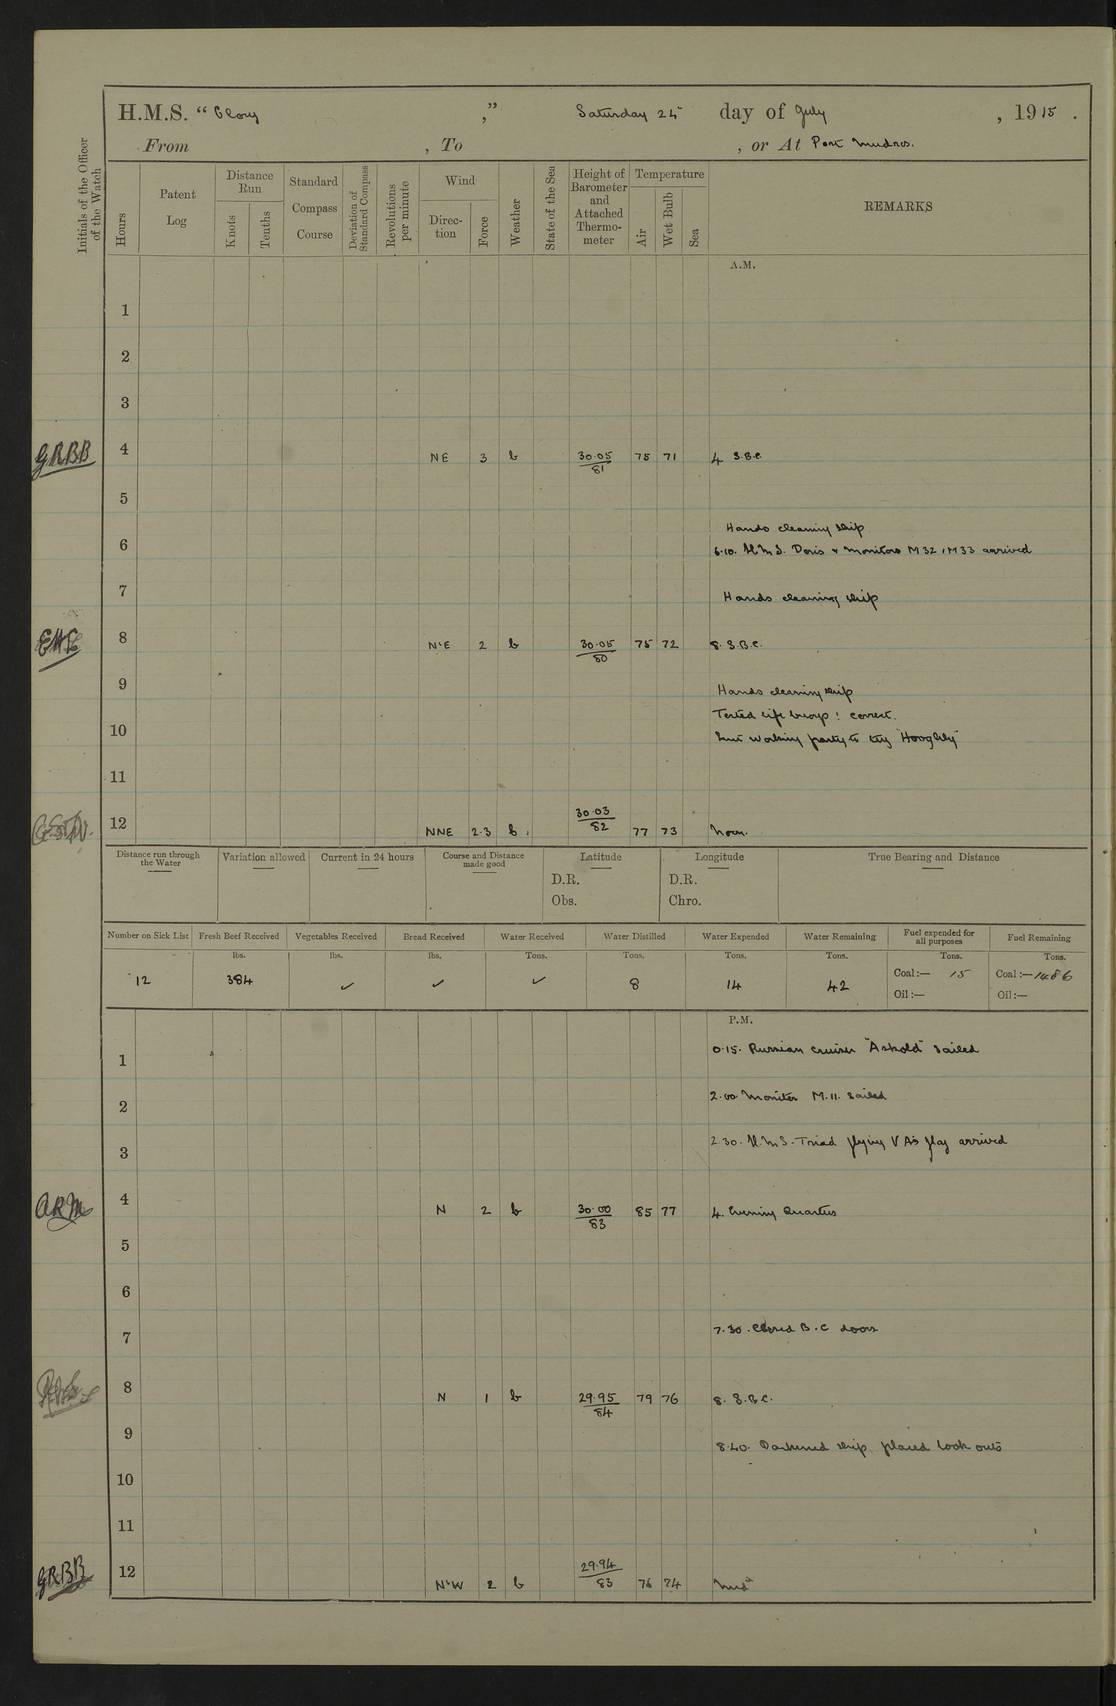 H.M.S. “ Glory ,” Saturday 24th day of July , 1915 .
From , To , or At Port Mudros.
Initials of the Officer of the Watch
Hours
Patent Log
Distance Run
Knots
Tenths
Standard Compass Course
Deviation of Standard Compass
Revolutions per minute
Wind
Direction
Force
Weather
State of the Sea
Height of Barometer and Attached Thermometer
Temperature
Air
Wet Bulb
Sea
REMARKS
A.M.
1
2
3
GRBB 4 NE 3 b 30.05 81 75 71 4 S.B.C.
5
Hands cleaning ship
6 6.10. H.M.S. Doris & monitors M 32, M 33 arrived
7 Hands cleaning ship
8 N'E 2 b 30.05 80 75 72 8. S.B.C.
9 Hands cleaning ship
Tested life buoys : correct.
10 Sent working party to tug "Hooghly"
11
12 NNE 2.3 b. 30.03 82 77 73 Noon.
Distance run through the Water
Variation allowed
Current in 24 hours
Course and Distance made good
Latitude
D.R.
Obs.
Longitude
D.R.
Chro.
True Bearing and Distance
Number on Sick List
Fresh Beef Received
Vegetables Received
Bread Received
Water Received
Water Distilled
Water Expended
Water Remaining
Fuel expended for all purposes
Fuel Remaining
lbs. lbs. lbs. Tons. Tons. Tons. Tons. Tons. Tons.
12 384 ✓ ✓ ✓ 8 14 42 Coal :— 15 Coal :— 1486
Oil :— Oil :—
P.M.
1 0.15. Russian cruiser "Askold" sailed
2 2.00 Monitor M.11. sailed
3 2.30. H.M.S. Triad flying V A's flag arrived
ARM 4 N 2 b 30.00 83 85 77 4. Evening Quarters
5
6
7 7.30. Closed B.C doors
8 N 1 b 29.95 84 79 76 8. S.B.C.
9 8.40. Darkened ship, placed look outs
10
11
GRBB 12 N'W 2 b 29.94 83 76 74 Midt